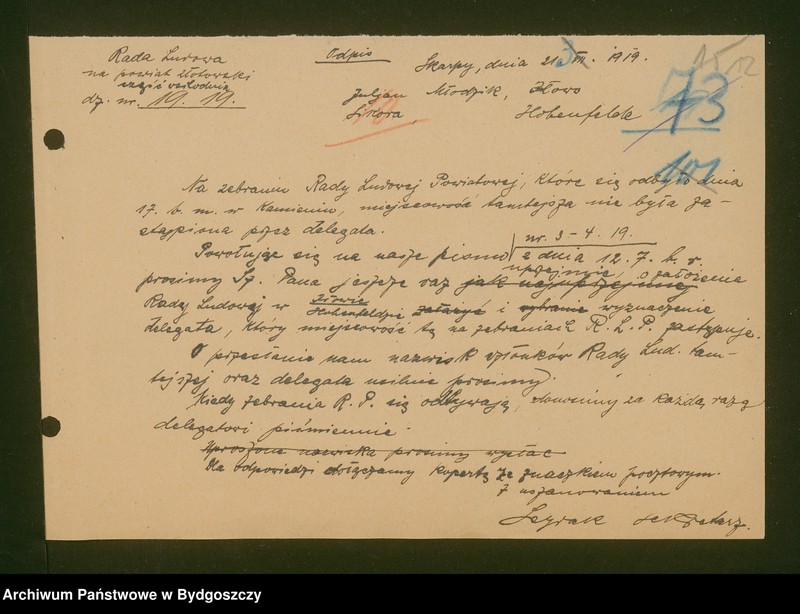 Rada Ludowa
na powiat złotowski
część wschodnia
dz. nr. 19. 19.
Odpis
Skarpy, dnia 21. 1919.
Juljan Młodzik, Iłowo
Sikora, Hohenfelde
73
101
Na zebraniu Rady Ludowej Powiatowej, które się odbyło dnia
17. b. m. w Kamieniu, miejscowość tamtejsza nie była za-
stąpiona przez delegata.
nr. 3-4. 19.
Powołując się na nasze pismo z dnia 12. 7. b. r.
uprzejmie, o założenie
prosimy Sz. Pana jeszcze raz jak najuprzejmiej
Rady Ludowej w Hohenfeldzie założyć i wybranie wyznaczenie
delegata, który miejscowość tę na zebraniach R. L. P. zastępuje.
O przesłanie nam nazwisk członków Rady Lud. tam-
tejszej oraz delegata usilnie prosimy.
Kiedy zebrania R. P. się odbywają, donosimy za każdą razą
delegatowi piśmiennie.
Uproszone nazwiska prosimy wysłać
Dla odpowiedzi dołączamy kopertę ze znaczkiem pocztowym.
Z uszanowaniem
sekretarz.
Archiwum Państwowe w Bydgoszczy